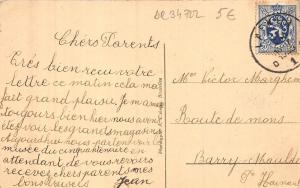 DC34702 5€
Chérs Parents
Très bien reçu votre
lettre ce matin cela ma
fait grand plaisir. Je m
toujours bien hier nous avons
étés voir les grants magasin
Aujourd'hui nous partons voir le
musée du cinquantenaire en
attendant de vous revoirs
recevez chers parents mes
bons baisers Jean
Mr Victor Marghem
Route de mons
Barry-Maulde
Pr Hainau